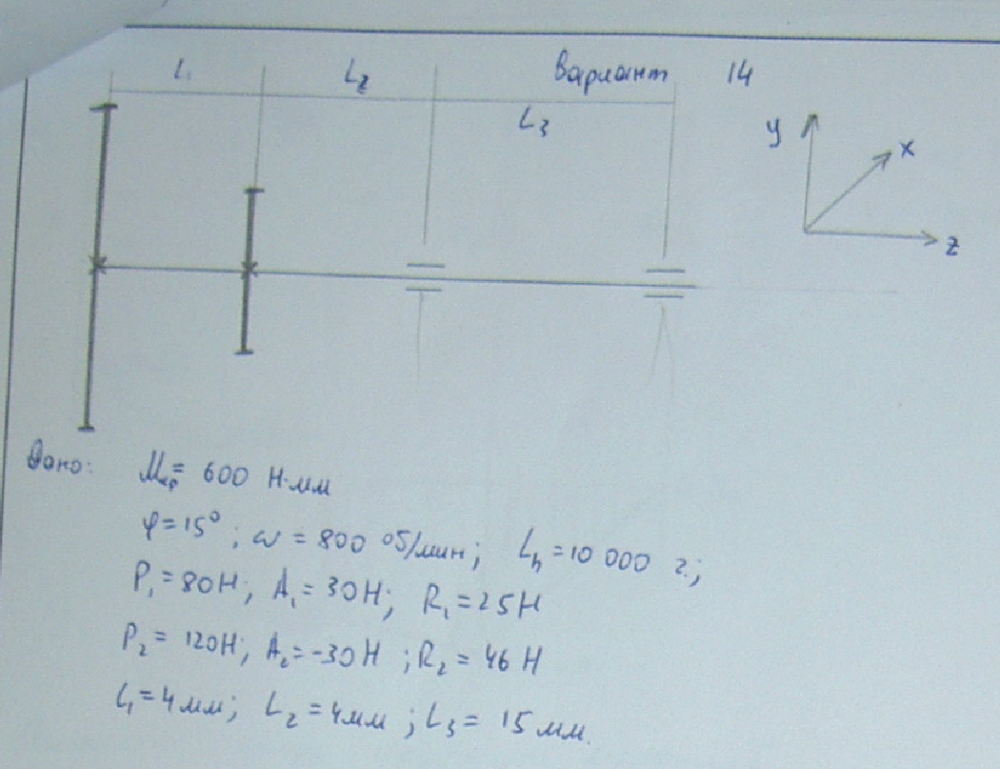 L₁ L₂ Вариант 14
L₃
y x
z
Дано: Mкр = 600 Н·мм
φ=15°; ω = 800 об/мин; Lh = 10 000 г.;
P₁ = 80Н; A₁ = 30Н; R₁ = 25Н
P₂ = 120Н; A₂ = -30Н; R₂ = 46 Н
L₁ = 4 мм; L₂ = 4мм; L₃ = 15 мм.